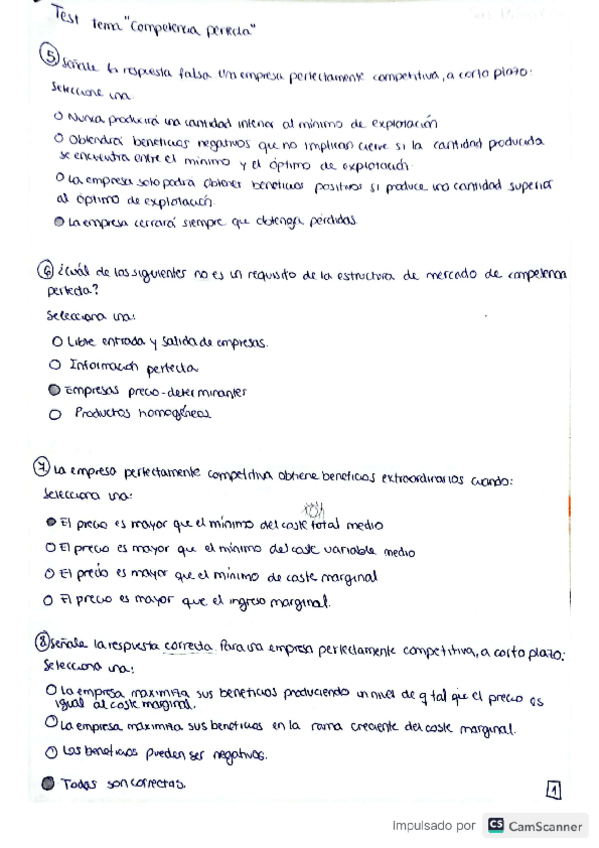 Test tema "Competencia perfecta"
5 Señale la respuesta falsa Una empresa perfectamente competitiva, a corto plazo:
Seleccione una
Nunca producirá una cantidad inferior al mínimo de explotación
Obtendrá beneficios negativos que no implican cierre si la cantidad producida
se encuentra entre el mínimo y el óptimo de explotación.
La empresa solo podrá obtener beneficios positivos si produce una cantidad superior
al óptimo de explotación
La empresa cerrará siempre que obtenga pérdidas
6 ¿Cuál de los siguientes no es un requisito de la estructura de mercado de competencia
perfecta?
Selecciona una:
Libre entrada y salida de empresas.
Información perfecta
Empresas precio-determinantes
Productos homogéneos
7 La empresa perfectamente competitiva obtiene beneficios extraordinarios cuando:
Selecciona una:
El precio es mayor que el mínimo del coste total medio
El precio es mayor que el mínimo del coste variable medio
El precio es mayor que el mínimo de coste marginal
El precio es mayor que el ingreso marginal.
8 Señale la respuesta correcta Para una empresa perfectamente competitiva, a corto plazo:
Selecciona una:
La empresa maximiza sus beneficios produciendo un nivel de q tal que el precio es
igual al coste marginal.
La empresa maximiza sus beneficios en la rama creciente del coste marginal.
Los beneficios pueden ser negativos.
Todas son correctas.
1
Impulsado por CS CamScanner